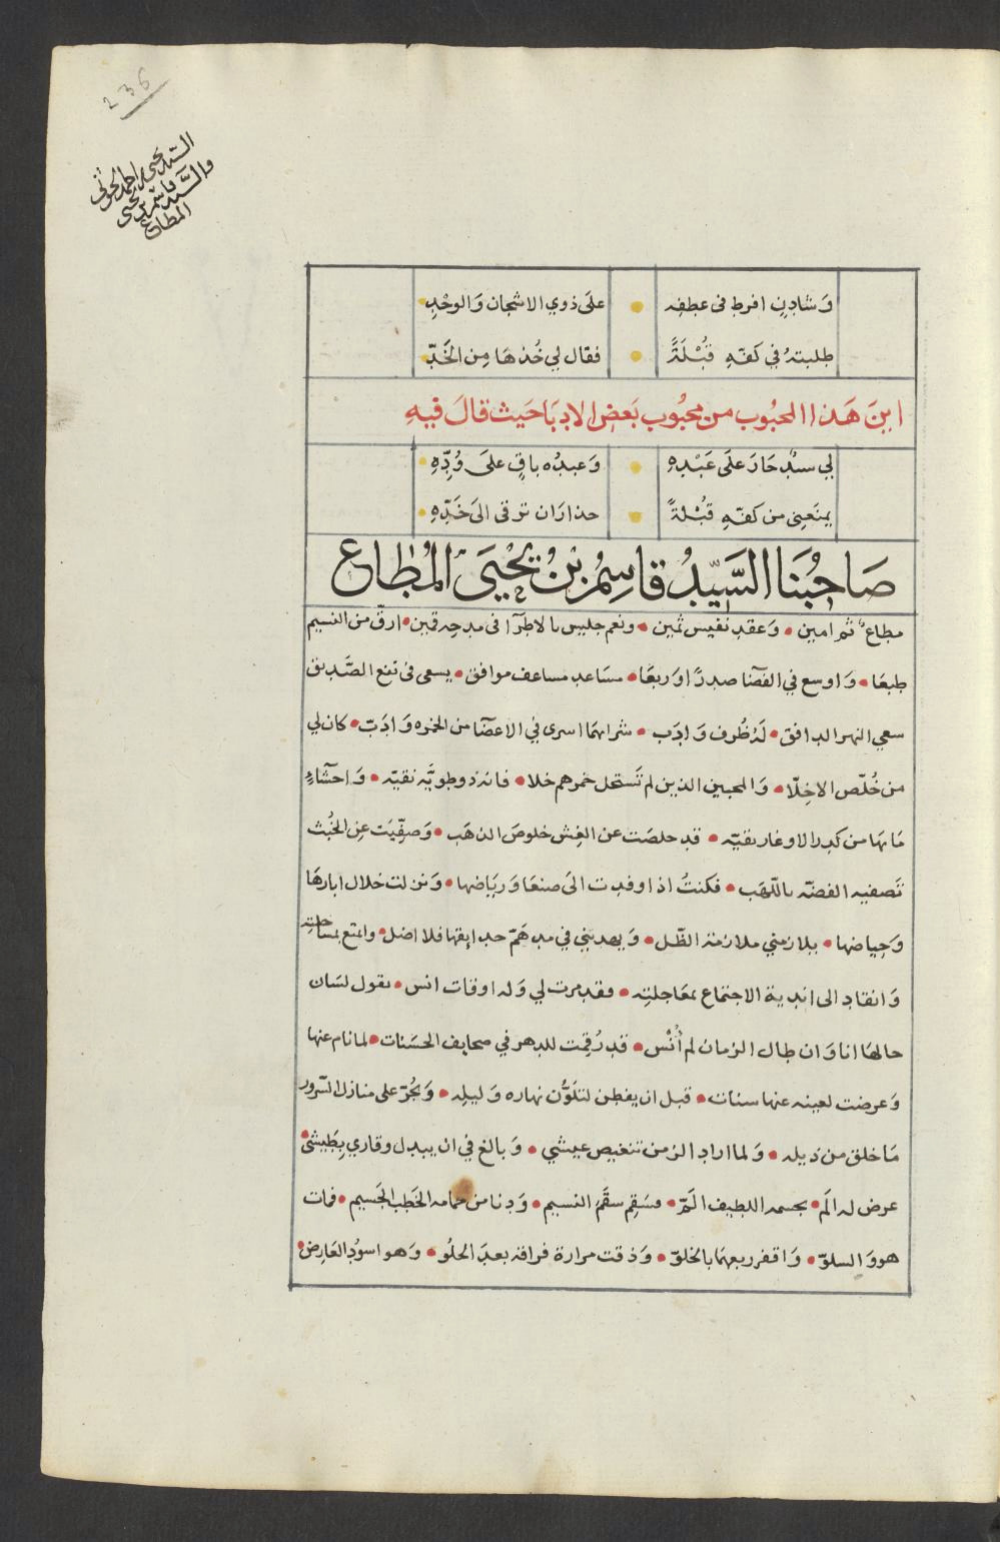 236
السيد يحيى بن احمد الحوثي
والسيد قاسم بن يحيى
المطاع
وَشادِنٍ افرط في عطفه • على ذوي الاشجان وَالوجْدِ •
طلبتهُ في كفّهِ قُبْلَةً • فقال لي خُذهَا مِن الخَدِّ •
اينَ هَذا المحبُوب من محبُوب بَعض الادبَا حَيث قالَ فيهِ
لي سيدٌ جَارَ علَى عَبْدهِ • وَعبدُه باقٍ علىَ وُدِّهِ •
يمنَعني من كفّهِ قُبْلةً • حذارَ ان ترقى الىَ خَدِّهِ •
صَاحِبُنَا السَّيِّدُ قاسِمُ بنُ يحْيىَ المُطاع
مطاعٌ ثم امين • وَعقد نفيس ثمين • ونعم جليس بالاطرَآ في مدحه قمين • ارقّ من النسيم
طبعَا • وَاوسع في الفضَا صدرًا وَربعَا • مسَاعد مساعف موافق • يسعى في نفع الصَّديق
سعي النهر الدافق • لَهُ ظُرف وَادَب • شرابهمَا اسرى في الاعضَا من الخمره وَادَبّ • كان لي
من خُلّص الاخِلّا • وَالمحبين الذين لم تَستحل خمرهم خلا • فانه ذو طويَّه نقيّه • وَاحشَاءٍ
مَابهَا من كدر الاوغار بقيّه • قد خلصَت عن الغِش خلوصَ الذهَب • وَصفِّيَت عن الخُبث
تَصفيه الفضّه باللّهَب • فكنتُ اذا وفدت الىَ صنعَا وَريَاضها • وَنزلت خلال ابارهَا
وَحِياضها • يلازمني ملازمة الظّل • وَيهديني في مدهَمّ حدايقها فلا اضل • واتمتع بمسَاجلته
وَانقاد الى اندية الاجتماع بمعَاجلتِه • فقد مرت لي وَله اوقات انس • يقول لسَان
حالهَا انا وَان طال الزمان لم أُنْس • قد رُقمت للدهر في صحايف الحسَنات • لما نام عنها
وَعرضت لعينه عنها سنات • قبل ان يفطن لتلوُّن نهاره وَليله • وَيجُرّ على منازل السّرور
مَا خلق من ذيله • وَلما اراد الزمن تنغيص عيشي • وَبالغ في ان يبدل وقاري بِطَيشي •
عرض له الَم • بجسمه اللطيف الَمّ • فسَقِم سقَمَ النسيم • وَدنا من حمامه الخَطب الجَسيم • فمات
هو وَالسلوّ • وَاقفر ربعهمَا بالخلوّ • وَذقت مرارة فراقه بعدَ الحلُو • وَهو اسوَدُ العَارِض •